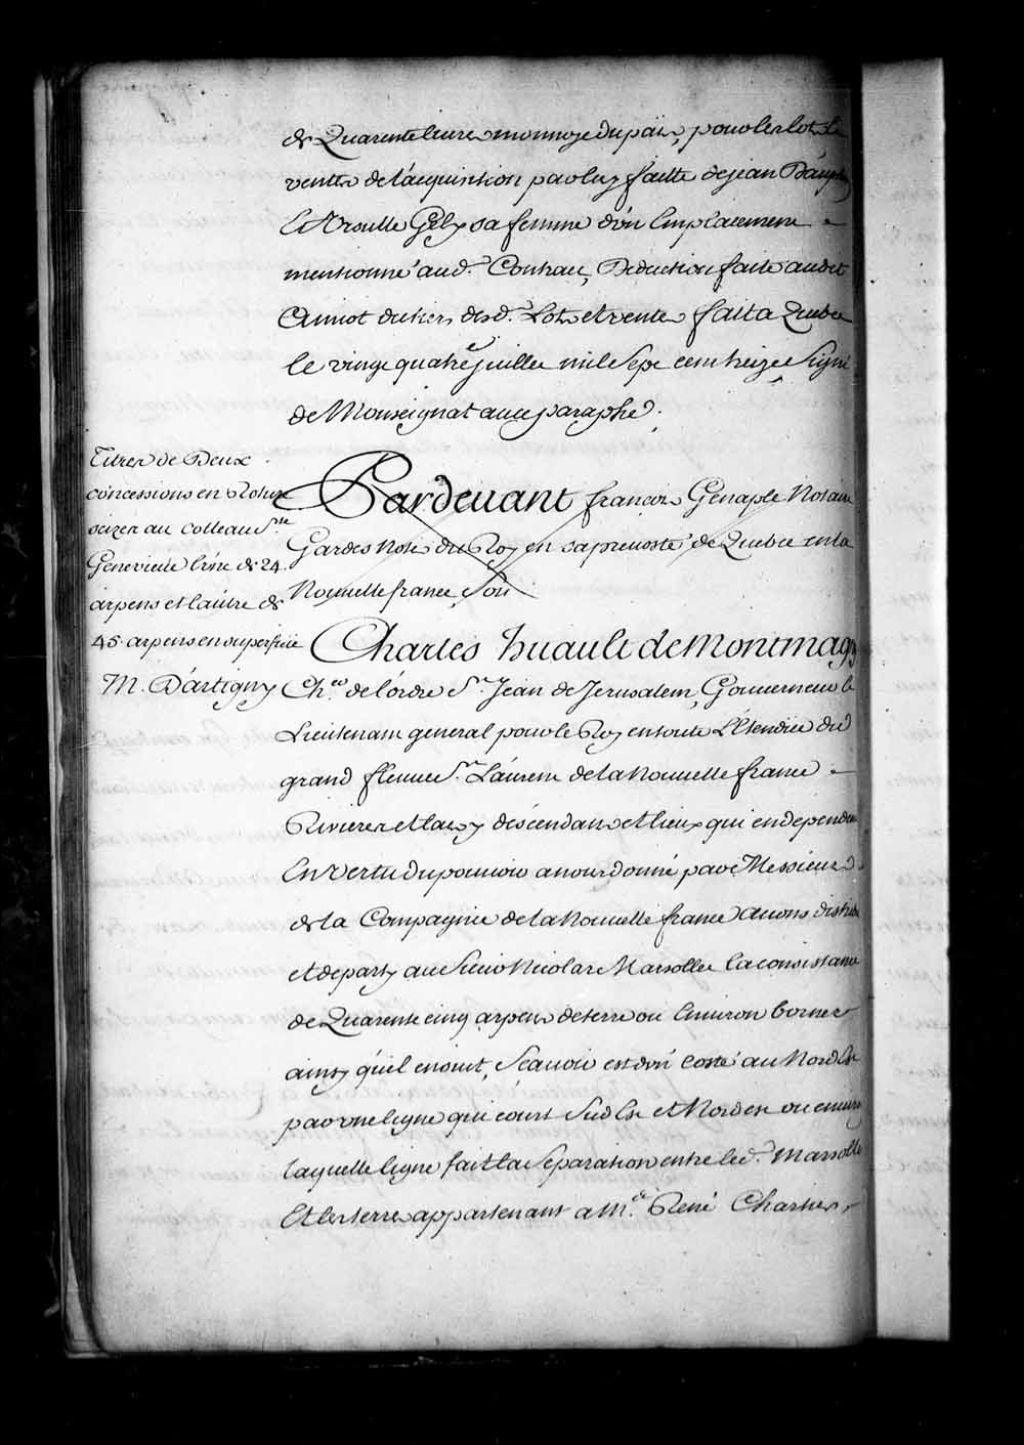 de Quarente livres monnoye du païs, pour les lots et
ventes de l'acquisition par luy faitte de jean
Et Vrsulle Gely sa femme d'vn Emplacement
mentionné aud. Contract, Deduction faite audit
Amiot du tiers desd. Lots et ventes fait a Quebec
le vingt quatre Juillet mil Sept cent treize Signé
de Monseignat auec paraphe.
Titres de Deux
concessions en Roture
scizes au cotteau Ste
Geneviéve l'vne de 24.
arpens et l'autre de
45 arpens en superficie
M. D'artigny
Pardeuant françois Genaple Notaire
Gardes Notes du Roy en sa preuosté de Quebec en la
Nouuelle france, fou
Charles huault de Montmagny
Cher. de l'ordre St. Jean de Jerusalem, Gouuerneur le
Lieutenant general pour le Roy en toute L'Etendüe du
grand fleuue St. Laurens de la Nouuelle france
Rivieres et lacs y descendans et lieux qui en dependent
En Vertu du pouuoir a nous donné par Messieurs
de la Compagnie de la Nouuelle france auons distribué
et departy au Sieur Nicolas Marsollet la consistance
de Quarente cinq arpens de terre ou Enuiron bornez
ainsy qu'il ensuit, Scauoir est d'vn costé au Nord Est
par vne ligne qui court Sud Est et Nordest ou enuiron
laquelle ligne fait la Separation entre led. Marsollet
Et les terres appartenant a Me. René Chartier,